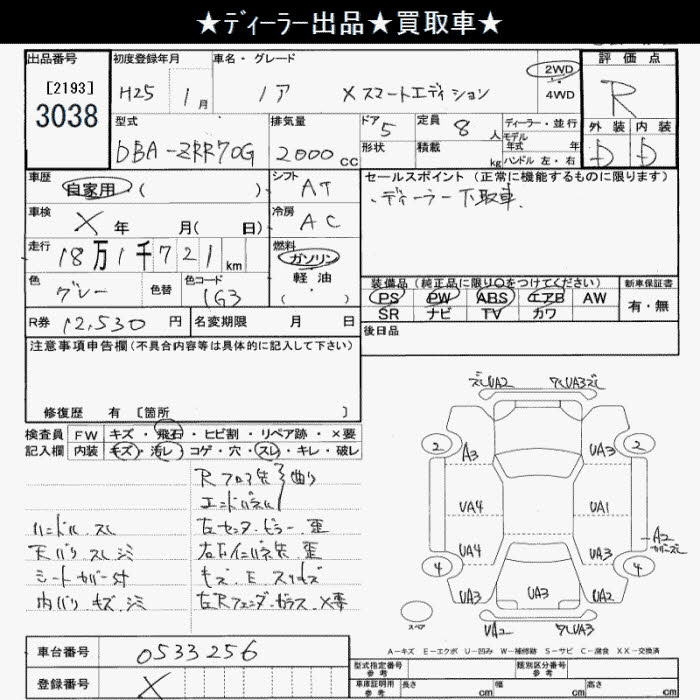 ★ディーラー出品★買取車★
出品番号
[2193]
3038
初度登録年月
H25 1月
車名・グレード
ノア Xスマートエディション
2WD
4WD
評価点
R
外装 内装
D D
型式
DBA-ZRR70G
排気量
2000cc
ドア 5
形状
定員 8人
積載 kg
ディーラー・並行
モデル年式 年
ハンドル 左・右
車歴
自家用 ( )
シフト
AT
車検
X 年 月( 日)
冷房
AC
走行
18万1千721km
燃料
ガソリン
軽油
( ・ )
色
グレー
色替
色コード
1G3
R券 12,530円
名変期限 月 日
セールスポイント(正常に機能するものに限ります)
・ディーラー下取車.
装備品(純正品に限り○をつけてください)
PS PW ABS エアB AW
SR ナビ TV カワ
新車保証書
有・無
後日品
注意事項申告欄(不具合内容等は具体的に記入して下さい)
修復歴 有 [箇所 ]
検査員
記入欄
FW キズ・飛石・ヒビ割・リペア跡・×要
内装 キズ・汚レ・コゲ・穴・スレ・キレ・破レ
Rフロア先 曲り
エンドパネル
ハンドル スレ
左センターピラー 歪
天バリ スレ シミ
右右インパネ先 歪
シートカバー付
キズ.E スリキズ
内バリ キズ.シミ
左Rフェンダ.ガラス ×要
ズレUA2
ワレUA3ズレ
2
2
A3
UA3
UA4
UA1
A2
カバーズレ
UA4
UA3
4
4
UA3
UA3
UA2
スペア
UA2
ワレUA3
A-キズ E-エクボ U-凹み W-補修跡 S-サビ C-腐食 XX-交換済
車台番号
0533256
登録番号
X
型式指定番号
参考
類別区分番号
参考
車庫証明用
参考
長さ cm
幅 cm
高さ cm